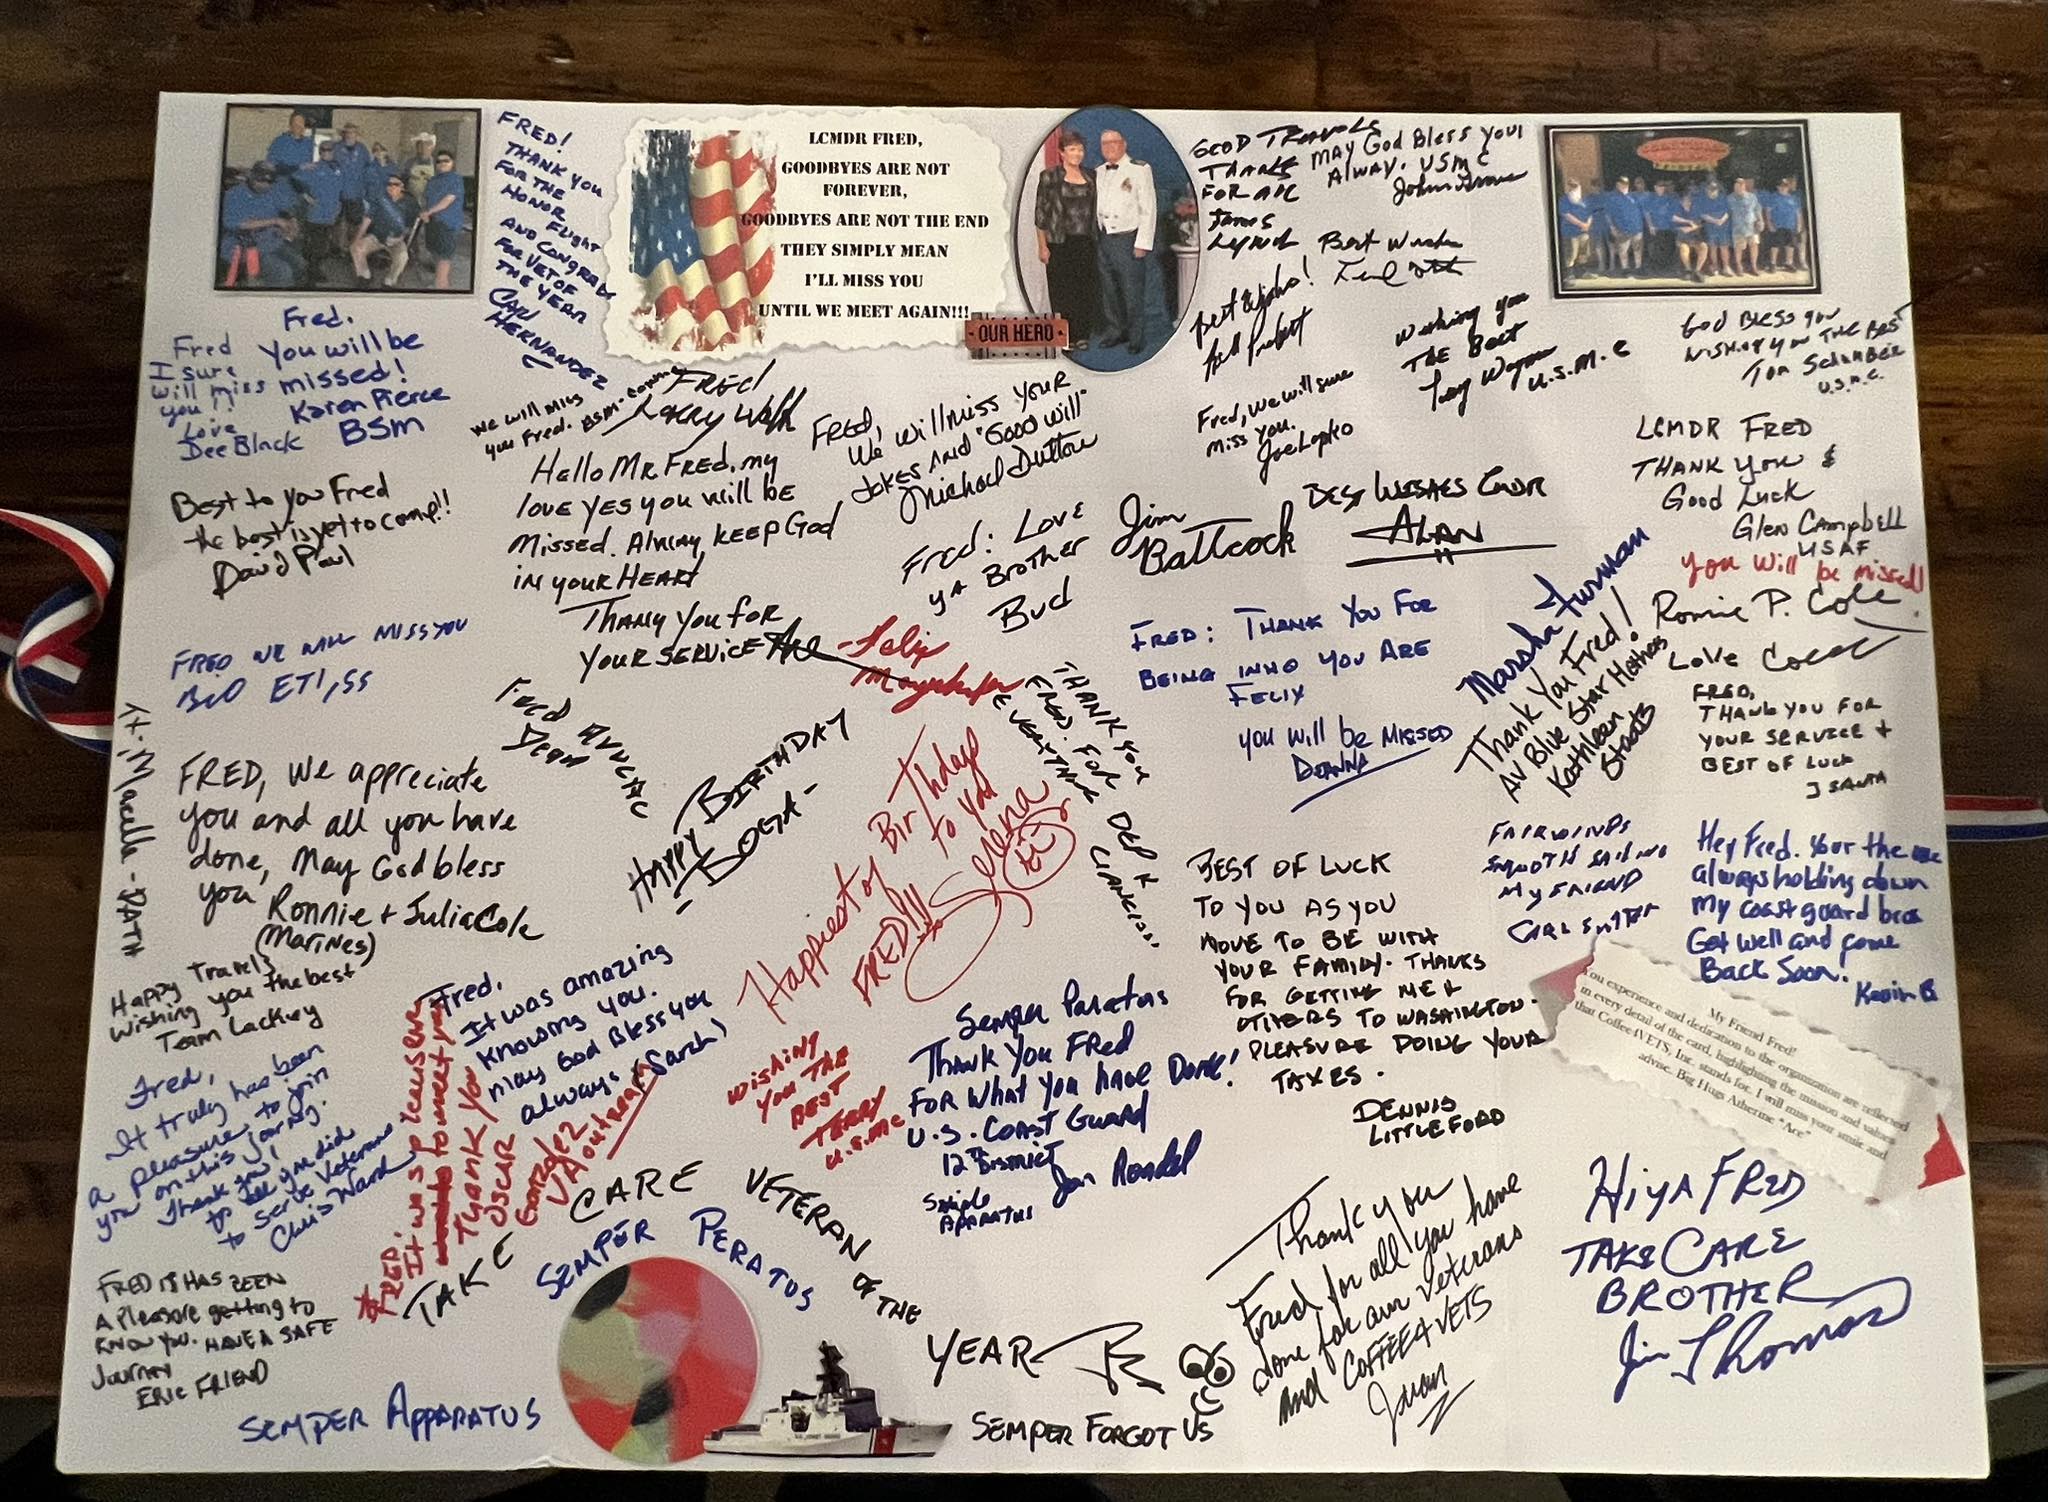 FRED!
THANK YOU
FOR THE
HONOR Flight
AND CONGRATS
FOR VET OF
THE YEAR
CARL
HERNANDEZ
LCMDR FRED,
GOODBYES ARE NOT
FOREVER,
GOODBYES ARE NOT THE END
THEY SIMPLY MEAN
I'LL MISS YOU
UNTIL WE MEET AGAIN!!!
OUR HERO
GOOD TRAVELS
THANKS
FOR ALL
JAMES
MAY God Bless You!
Alway. USMC
Best Wishes
Best Wishes!
Wishing you
THE Best
U.S.M.C
God Bless You
WISHING YOU THE BEST
TOM
U.S.M.C.
Fred
I sure
will miss
you!!
Love
Dee Black
Fred.
You will be
missed!
Karen Pierce
BSM
We will miss
you Fred. BSM-
FRED
Larry
FRED,
We will miss your
Jokes AND "Good Will"
Michael Dutton
Fred, we will sure
miss you.
Joe Lopko
LCMDR FRED
THANK YOU &
Good Luck
Glen Campbell
USAF
You will be missed!
Ronnie P. Cole
Love
Best to you Fred
the best is yet to come!!
David Paul
Hello MR FRED, my
love yes you will be
missed. Alway keep God
in your HEART
Thank You for
your SERVICE
Fred: Love
ya Brother
Bud
Jim
Battcock
BEST WISHES CMDR
ALAN
FRED WE WILL MISS YOU
- Felix
FRED: THANK YOU FOR
BEING WHO YOU ARE
FELIX
you will be MISSED
DEANNA
Marsha Furman
Thank You Fred!
AV Blue Star Mothers
Kathleen
Staats
FRED,
THANK YOU FOR
YOUR SERVICE +
BEST OF LUCK
J SANTA
Lt. Marcella - DATH
Fred
Dean
THANK YOU
FRED. FOR
EVERYTHING
DEPK
FRED, We appreciate
you and all you have
done, May God bless
you,
Ronnie + Julia Cole
(Marines)
HAPPY BIRTHDAY
- DOGA -
Happiest of BirThdays
to you
FRED!!!
Selena
BEST OF LUCK
TO YOU AS YOU
MOVE TO BE WITH
YOUR FAMILY. THANKS
FOR GETTING ME &
OTHERS TO WASHINGTON.
PLEASURE DOING YOUR
TAXES.
DENNIS
LITTLEFORD
FAIRWINDS
SMOOTH SAILING
MY FRIEND
CARL
Hey Fred. Your the one
always holding down
My coast guard bros
Get well and come
Back Soon.
Kevin B
Happy Travels
Wishing you the best
Team Lackey
Fred,
It was amazing
knowing you.
May God Bless you
always (Sarah)
VA outreach
FRED: It was a pleasure
to meet you
THANK YOU
OSCAR
Gonzalez
WISHING
YOU THE
BEST
TERRY
U.S.MC
Semper Paratus
Thank You FRed
For What You have Done!
U.S. COAST GUARD
12TH DISTRICT
Simple
APARATUS
My Friend Fred!
You experience and dedication to the organization are reflected
in every detail of the card, highlighting the mission and values
that Coffee4VETS, Inc. stands for. I will miss your smile and
advise. Big Hugs Atherine "Ace"
Fred,
It truly has been
a pleasure to join
you on this journey.
Thank you!
to all you did
to serve Veterans
Chris Ward
TAKE CARE VETERAN OF THE
YEAR
SEMPER PERATUS
Thank you
Fred for all you have
done for our Veterans
and COFFEE4VETS
Juan
HiyA FRED
TAKE CARE
BROTHER
Jim Thomas
FRED IT HAS BEEN
A Pleasure getting to
KNOW YOU. HAVE A SAFE
Journey
ERIC FRIEND
SEMPER APPARATUS
SEMPER FORGOT US